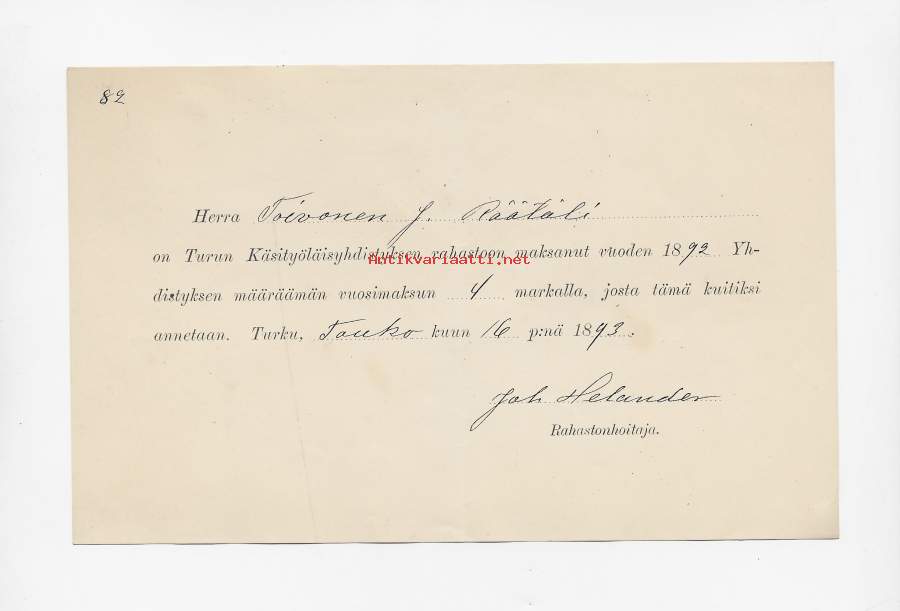 82
Herra Toivonen J. Räätäli
on Turun Käsityöläisyhdistyksen rahastoon maksanut vuoden 1892 Yh-
Antikvariaatti.net
distyksen määräämän vuosimaksun 4 markalla, josta tämä kuitiksi
annetaan. Turku, Touko kuun 16 p:nä 1893.
Joh Helander
Rahastonhoitaja.